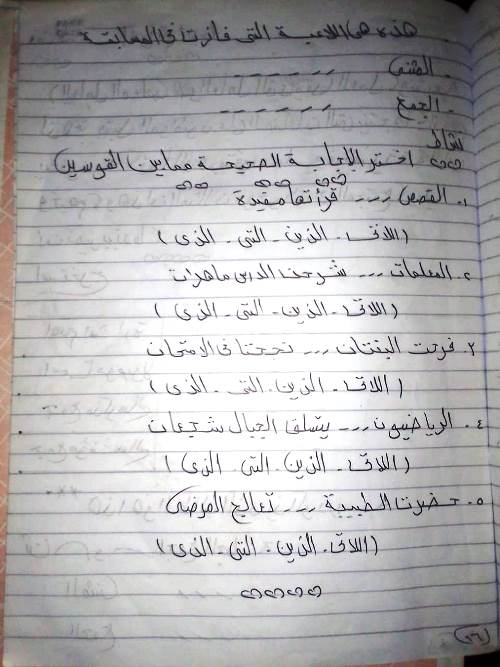 هذه هى اللاعبة التى فازت فى المسابقة
المثنى - - - - - - -
- الجمع - - - - - - -
نشاط
اختر الإجابة الصحيحة مما بين القوسين
١. القصص --- قرأتها مفيدة
(اللاتى - الذين - التى - الذى)
٢. المعلمات --- شرحن الدرس ماهرات
(اللاتى - الذين - التى - الذى)
٣. فرحت البنتان --- نجحتا فى الامتحان
(اللاتى - الذين - التى - الذى)
٤. الرياضيون --- يتسلقن الجبال شجعان
(اللاتى - الذين - التى - الذى)
٥- حضرت الطبيبة --- تعالج المرضى
(اللاتى - الذين - التى - الذى)
(٢٦)